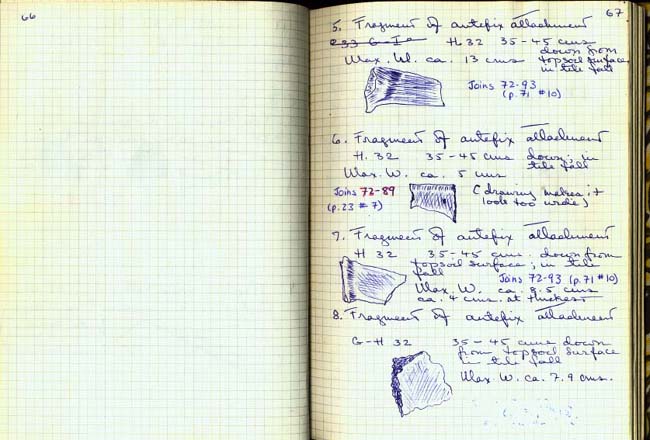 66
67
5. Fragment of antefix attachment
H 32 35-45 cms down from
topsoil surface
in tile fall
Max. W. ca. 13 cms
Joins 72-93
(p. 71 #10)
6. Fragment of antefix attachment
H. 32 35-45 cms down; in
tile fall
Max. W. ca. 5 cms
Joins 72-89
(p. 23 # 7)
(drawing makes it
look too wide)
7. Fragment of antefix attachment
H 32 35-45 cms. down from
topsoil surface; in tile
fall
Joins 72-93 (p. 71 #10)
Max. W. ca. 8.5 cms
ca. 4 cms. at thickest
8. Fragment of antefix attachment
G-H 32 35-45 cms down
from topsoil surface
in tile fall
Max. W. ca. 7.9 cms.